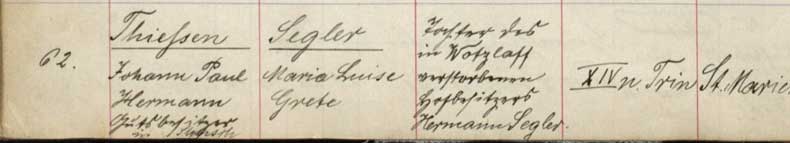 62.
Thießen
Johann Paul
Hermann
Gutsbesitzer
in
Segler
Maria Luise
Grete
Tochter des
in Wotzlaff
verstorbenen
Hofbesitzers
Hermann Segler.
XIV n. Trin
St. Marien